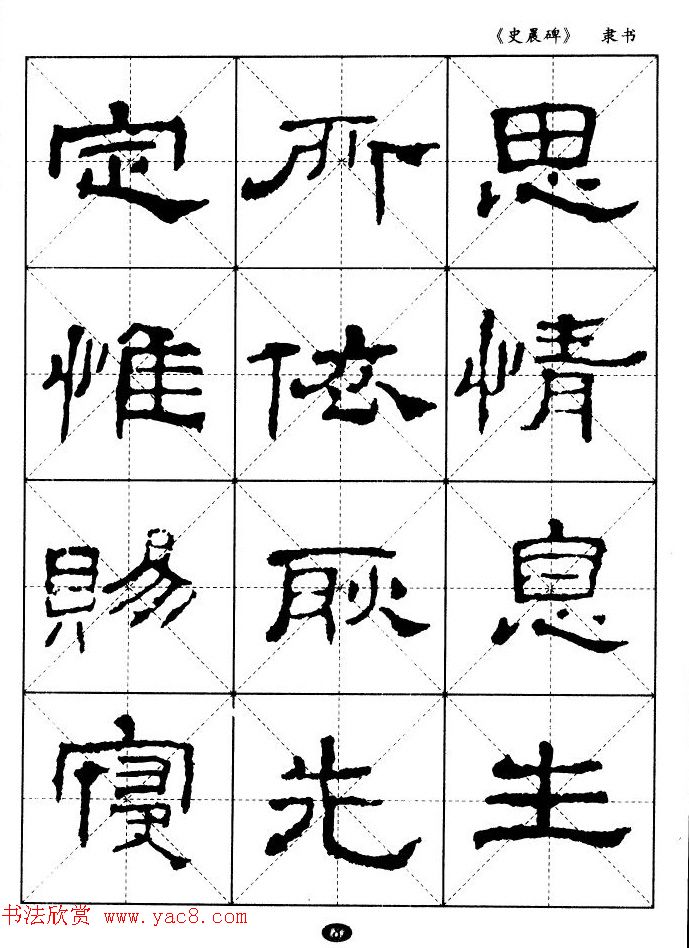 《史晨碑》 隶书
思情息生
所依耿先
定惟賜寑
书法欣赏 www.yac8.com